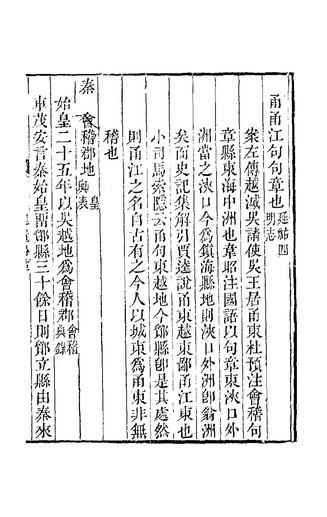 甬甬江句句章也延祐四明志
案左傳越滅吳請使吳王居甬東杜預注會稽句
章縣東海中洲也韋昭注國語以句章東浹口外
洲當之浹口今爲鎮海縣地則浹口外洲卽翁洲
矣而史記集解引賈逵說甬東越東鄙甬江東也
小司馬索隱云甬句東越地今鄮縣卽是其處然
則甬江之名自古有之今人以城東爲甬東非無
稽也
秦 會稽郡地輿地表
始皇二十五年以吳越地爲會稽郡會稽輿錄
車茂安言秦始皇留鄮縣三十餘日則鄮立縣由秦來